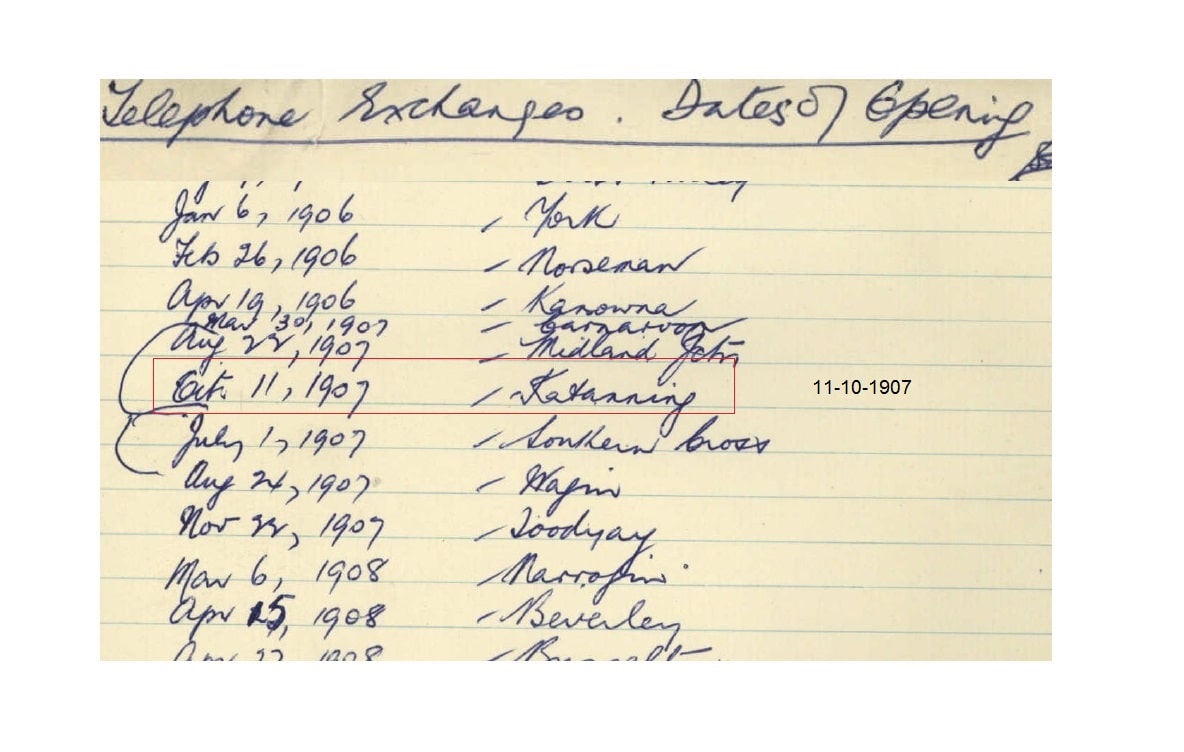 Telephone Exchanges. Dates of Opening
Jan 6, 1906 York
Feb 26, 1906 Norseman
Apr 19, 1906 Kanowna
Mar 30, 1907 Carnarvon
Aug 22, 1907 Midland Jctn
Oct. 11, 1907 Katanning 11-10-1907
July 1, 1907 Southern Cross
Aug 24, 1907 Wagin
Nov 22, 1907 Toodyay
Mar 6, 1908 Narrogin
Apr 15, 1908 Beverley
1908